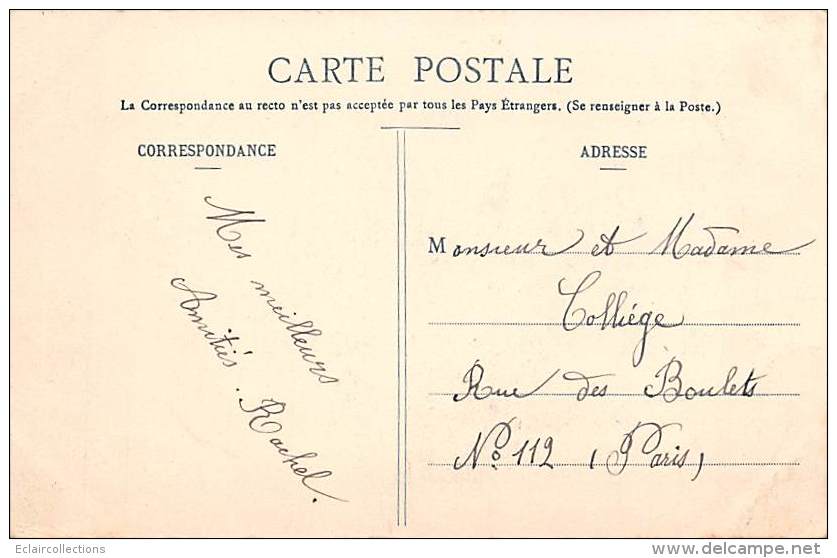 CARTE POSTALE
La Correspondance au recto n'est pas acceptée par tous les Pays Étrangers. (Se renseigner à la Poste.)
CORRESPONDANCE
Mes meilleurs
Amitiés. Rachel.
ADRESSE
Monsieur et Madame
Colliége
Rue des Boulets
No 112 (Paris)
Eclaircollections
delcampe.net